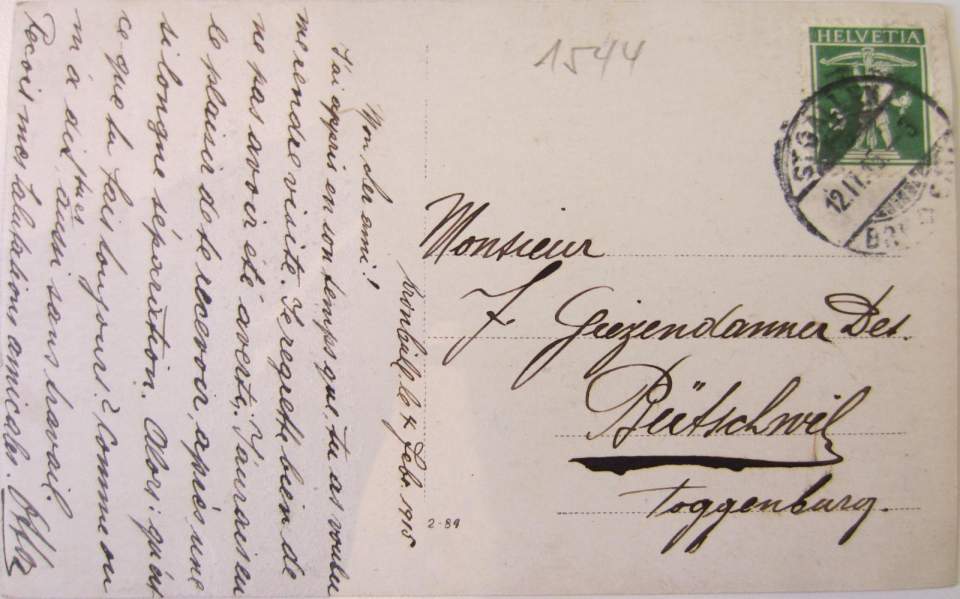 1544
HELVETIA
ST. GALLEN
12.II.15
Monsieur
J. Giezendanner Des.
Bütschwil
Toggenburg.
2-84
Kronbühl, le Febr. 1915
Mon cher ami!
J'ai appris en son temps que, tu as voulu
me rendre visite. Je regrette bien de
ne pas avoir été averti, J'aurais eu
le plaisir de te recevoir, après une
si longue séparation. Alors: qu'est
ce que tu fais toujours? Comme on
m'a dit, tu es aussi sans travail.
Recois mes salutations amicales.